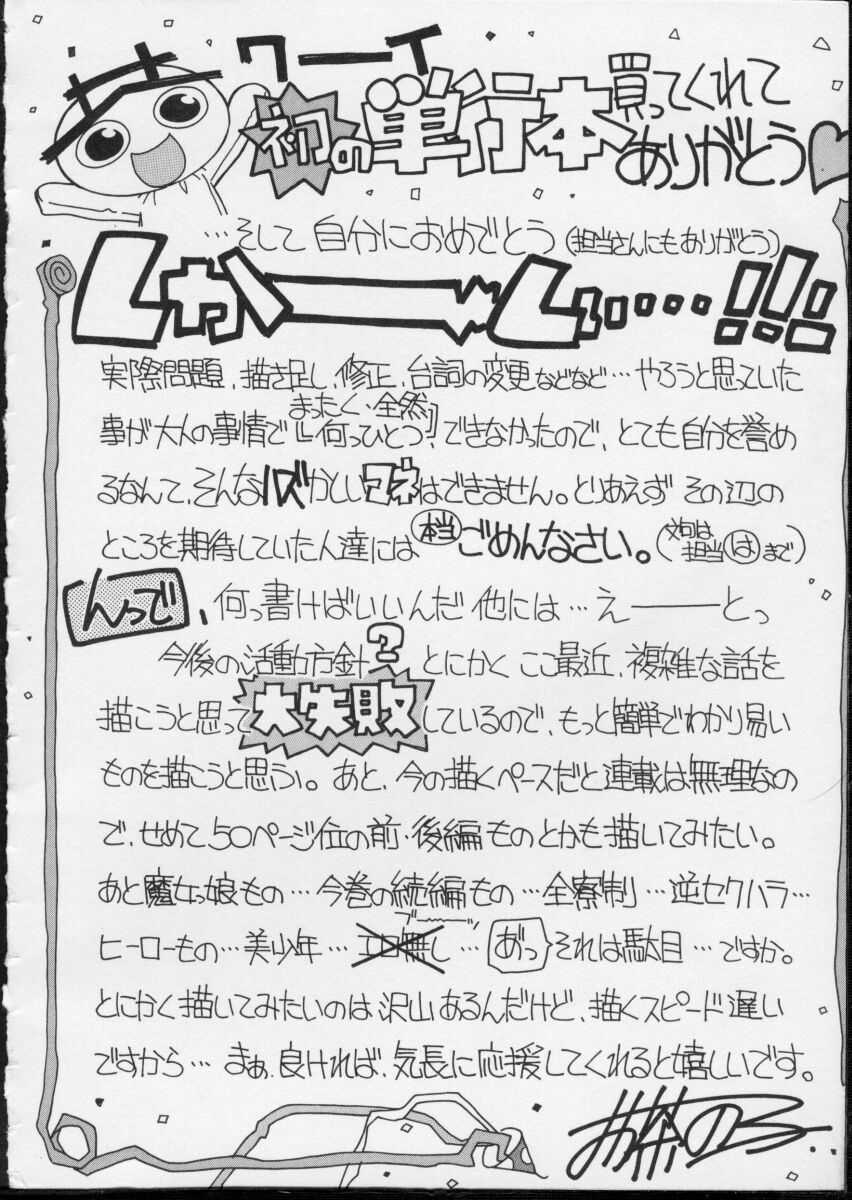 ワーイ
初の単行本買ってくれて
ありがとう
…そして自分におめでとう(担当さんにもありがとう)
しかーーしぃ…!!!
実際問題、描き足し、修正、台詞の変更などなど…やろうと思っていた
まったく、全然
事が大人の事情で『何っひとつ』できなかったので、とても自分を誉め
るなんて、そんなハズかしいマネはできません。とりあえず その辺の
ところを期待していた人達には本当ごめんなさい。(文句は担当はまで)
んっで、何っ書けばいいんだ 他には…えーーーとっ
今後の活動方針? とにかく ここ最近、複雑な話を
描こうと思って大失敗しているので、もっと簡単でわかり易い
ものを描こうと思うっ。あと、今の描くペースだと連載は無理なの
で、せめて50ページ位の前・後編ものとかも描いてみたい。
あと魔女っ娘もの…今巻の続編もの…全寮制…逆セクハラ…
ブーーーッ
ヒーローもの…美少年…エロ無し…あっそれは駄目…ですか。
とにかく描いてみたいのは沢山あるんだけど、描くスピード遅い
ですから…まぁ、良ければ、気長に応援してくれると嬉しいです。